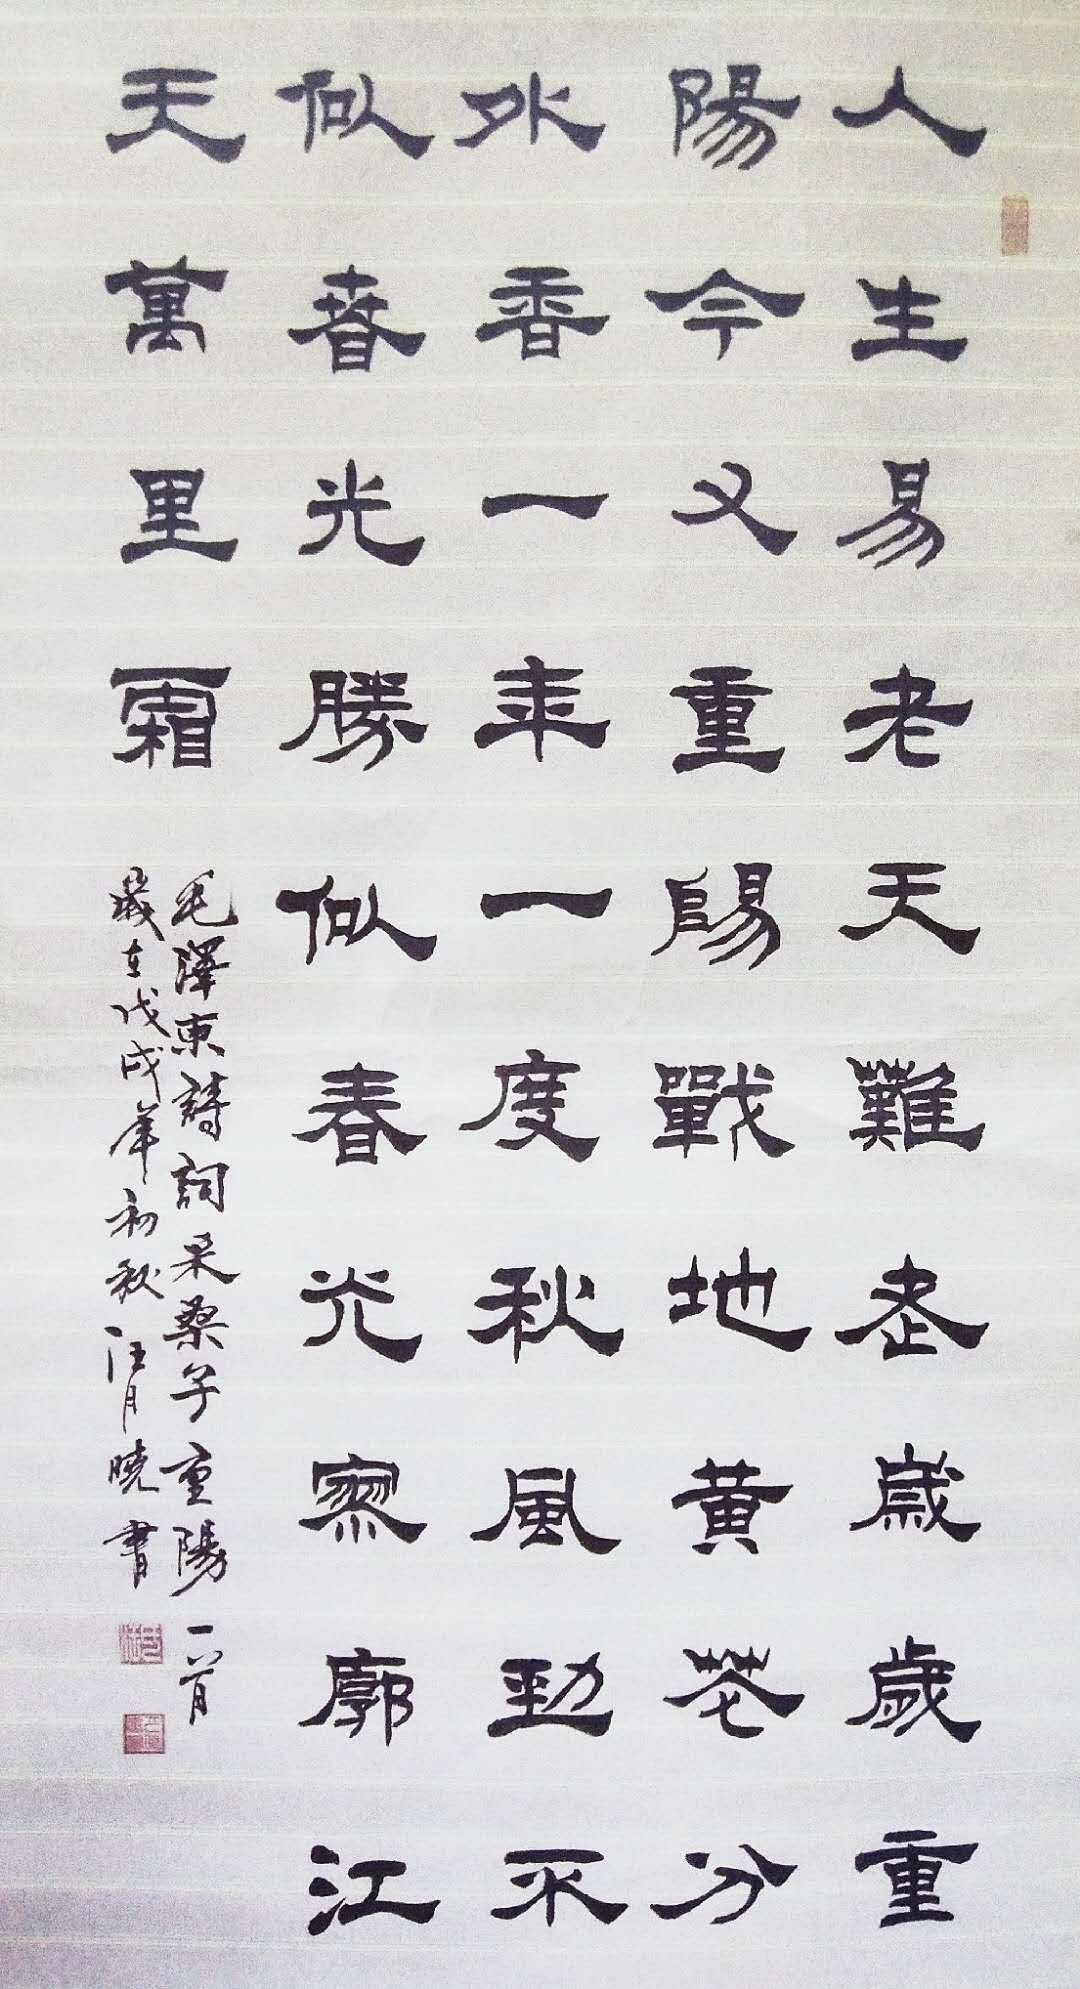 人生易老天難老歲歲重
陽今又重陽戰地黄花分
外香一年一度秋風勁不
似春光勝似春光寥廓江
天萬里霜
毛澤東詩詞采桑子重陽一首
歲在戊戌年初秋汪月曉書